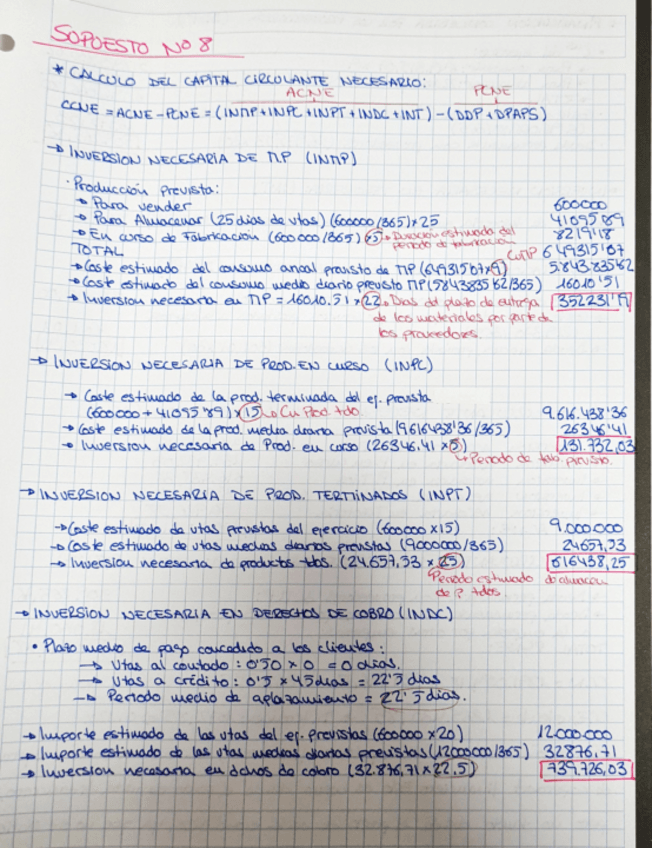 SUPUESTO Nº 8
* CALCULO DEL CAPITAL CIRCULANTE NECESARIO:
ACNE PCNE
CCNE = ACNE - PCNE = (INMP + INPC + INPT + INDC + INT) - (DDP + DPAPS)
→ INVERSION NECESARIA DE MP (INMP)
· Producción prevista:
→ Para vender 600000
→ Para Almacenar (25 dias de vtas) (600000/365) × 25 41095'89
→ En curso de Fabricación (600000/365) × 5 → Duración estimada del periodo de fabricación 8219'18
TOTAL 649315'07
→ Coste estimado del consumo anual previsto de MP (649315'07 × 9) CuMP 5.843.835'62
→ Coste estimado del consumo medio diario previsto MP (5843835'62/365) 16010'51
→ Inversion necesaria en MP = 16010.51 × 22 → Dias del plazo de entrega 352231'19
de los materiales por parte de
los proveedores.
→ INVERSION NECESARIA DE PROD. EN CURSO (INPC)
→ Coste estimado de la prod. terminada del ej. prevista
(600000 + 41095'89) × 15 → Cu Prod. tdo. 9.616.438'36
→ Coste estimado de la prod. media diaria prevista (9616438'36/365) 26346'41
→ Inversion necesaria de Prod. en curso (26346,41 × 5) 131.732,03
↳ Periodo de fab. previsto.
→ INVERSION NECESARIA DE PROD. TERMINADOS (INPT)
→ Coste estimado de vtas previstas del ejercicio (600000 × 15) 9.000.000
→ Coste estimado de vtas medias diarias previstas (9000000/365) 24657,53
→ Inversion necesaria de productos tdos. (24.657,53 × 25) 616438,25
Periodo estimado de almacen
de P. tdos
→ INVERSION NECESARIA EN DERECHOS DE COBRO (INDC)
• Plazo medio de pago concedido a los clientes:
→ Vtas al contado: 0'50 × 0 = 0 dias.
→ Vtas a crédito: 0'5 × 45 dias = 22'5 dias
→ Periodo medio de aplazamiento = 22'5 dias.
→ Importe estimado de las vtas del ej. previstas (600000 × 20) 12.000.000
→ Importe estimado de las vtas medias diarias previstas (12000000/365) 32876,71
→ Inversion necesaria en dchos de cobro (32.876,71 × 22.5) 739.726,03